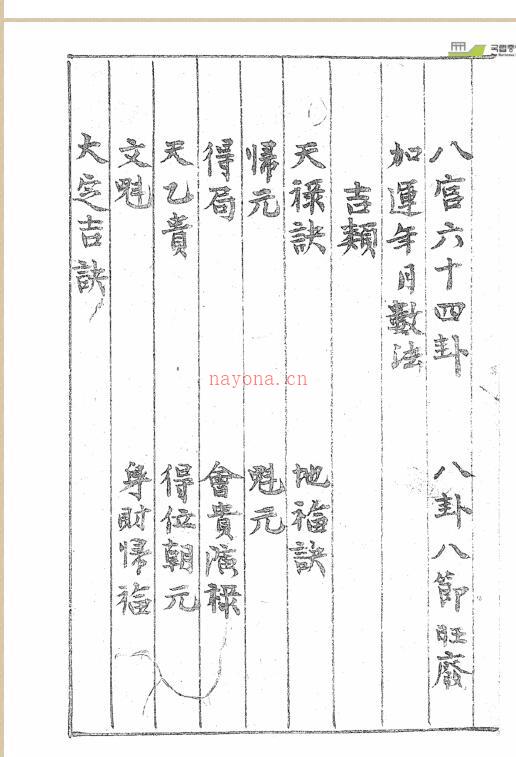 八宮六十四卦 八卦八節旺廢
加運年月數法
吉類
天祿訣 地福訣
帰元 魁元
得局 會貴演祿
天乙貴 得位朝元
文魁 身財帰福
大定吉訣
nayona.cn